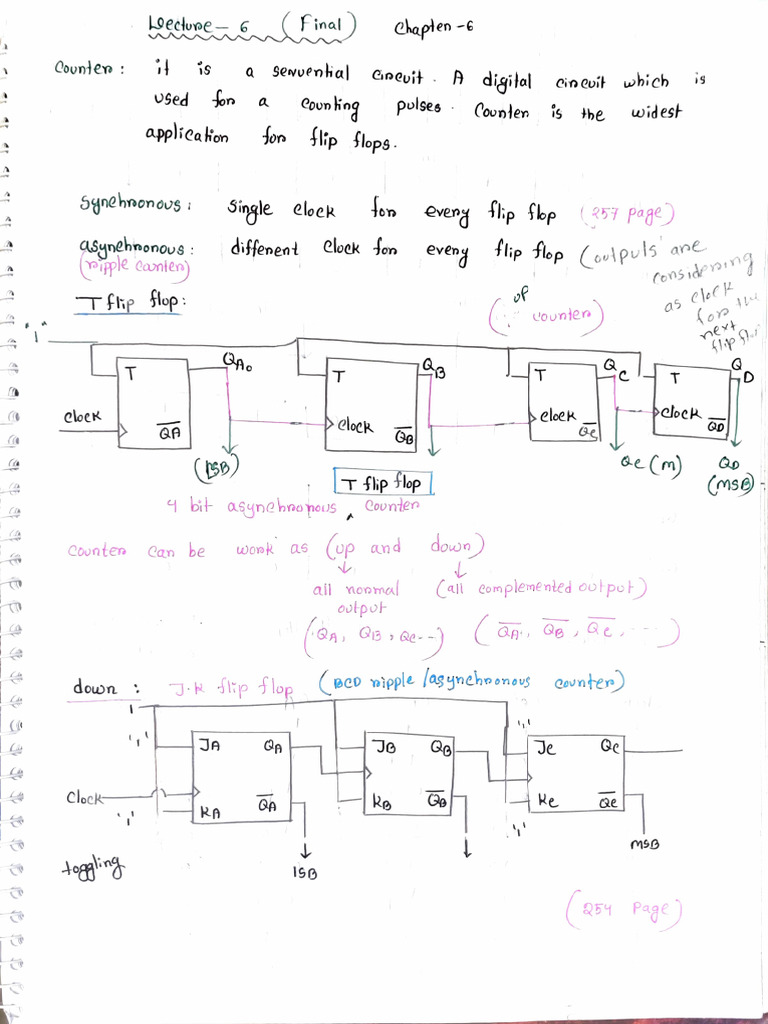 Lecture - 6 (Final) Chapter - 6
Counter: it is a sequential circuit. A digital circuit which is
used for a counting pulses. Counter is the widest
application for flip flops.
Synchronous: Single clock for every flip flop (257 page)
asynchronous: different clock for every flip flop (outputs are
considering
as clock
for the
next
flip flop
(ripple counter)
T flip flop:
of
counter)
"1"
T QA0 T QB T QC T QD
Clock QA̅ Clock QB̅ Clock QC̅ Clock QD̅
(LSB) QC (M) QD
(MSB)
T flip flop
4 bit asynchronous ‸ counter
Counter can be work as (up and down)
all normal (all complemented output)
output
(QA, QB, QC--) (Q̅A̅, Q̅B̅, Q̅C̅, ---)
down: J.K flip flop (BCD ripple / asynchronous counter)
1
'1' '1'
JA QA JB QB JC QC
Clock
KA Q̅A̅ KB Q̅B̅ KC Q̅C̅
'1' '1'
toggling LSB MSB
(254 page)